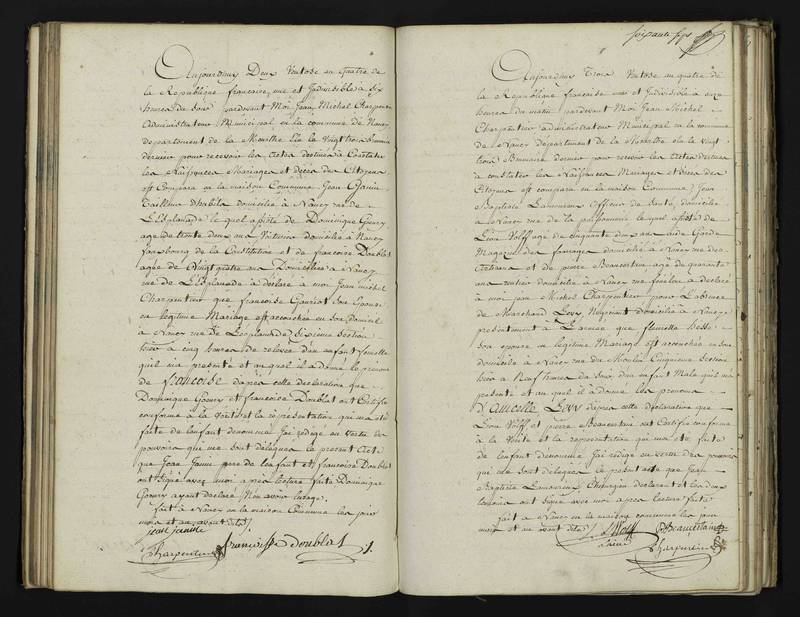 Aujourdhuy Deux Ventose an quatre de
la Republique francaise, une et Indivisible à Six
heures du Soir pardevant Moi Jean Michel Charpentier
Administrateur Municipal en la commune de Nancy
departement de la Meurthe Elu le Vingt trois brumaire
dernier pour recevoir les actes destinés à Constater
les Naissances Mariages et décès des Citoyens
est Comparu en la maison Commune Jean
Tailleur d'habits domicilié à Nancy rue de
L'Esplanade le quel assisté de Dominique Goury
agé de trente deux ans Voiturier domicilié à Nancy
faubourg de la Constitution et de francoise Doublat
agée de Vingt quatre ans Domiciliée à Nancy
rue de L'Esplanade a déclaré à moi Jean michel
Charpentier que francoise Son Epouse
en legitime Mariage est accouchée en Son domicile
à Nancy rue de L'Esplanade Sixieme Section
hier à cinq heures de relevée d'un enfant femelle
quil ma presenté et au quel il a donné le prenom
de francoise dapres cette declaration que
Dominique Goury et francoise Doublat ont Certifié
conforme à la Vérité et la représentation qui ma été
faite de l'enfant dénommé Jai rédigé en vertu des
pouvoirs qui me sont délégués le present acte
que Jean pere de lenfant et francoise Doublat
ont Signé avec moi apres lecture faite Dominique
Goury ayant declaré Non avoir l'usage.
fait à Nancy en la maison Commune les jour
mois et an avant dits
Charpentier francoise doublat
soixante sept
Aujourdhuy Trois Ventose an quatre de
la Republique francaise une et Indivisible à onze
heures du matin pardevant Moi Jean Michel
Charpentier administrateur Municipal en la commune
de Nancy departement de la Meurthe elu le Vingt
trois Brumaire dernier pour recevoir les Actes destinés
à constater les Naissances Mariages et décès des
Citoyens est comparu en la maison Commune Jean
Baptiste Lamoureux Officier de Santé domicilié
à Nancy rue de la le quel assisté de
Leon Wolff agé de Cinquante deux ans aide Garde
Magazin des fourages domicilié à Nancy rue des
et de pierre Beaucertain agé de quarante
ans rentier domicilié à Nancy rue a déclaré
à moi jean Michel Charpentier pour L'absence
de Marchand Levy, Negociant domicilié à Nancy
presentement à L'armée que
son epouse en legitime Mariage est accouchée en Son
domicile à Nancy rue du Moulin Cinquieme Section
hier à Neuf heures du Soir d'un enfant Male quil ma
presenté et au quel il a donné les prenoms
Levy dapres cette déclaration que
Leon Wolff et pierre Beaucertain ont Certifié conforme
à la Vérité et la représentation qui ma été faite
de l'enfant dénommé Jai rédigé en vertu des pouvoirs
qui me sont délégués le présent acte que Jean
Baptiste Lamoureux Chirurgien declarant et les deux
temoins ont Signé avec moi apres lecture faite
fait à Nancy en la maison commune les jour
mois et an avant dits
L. Wolff Beaucertain
Charpentier